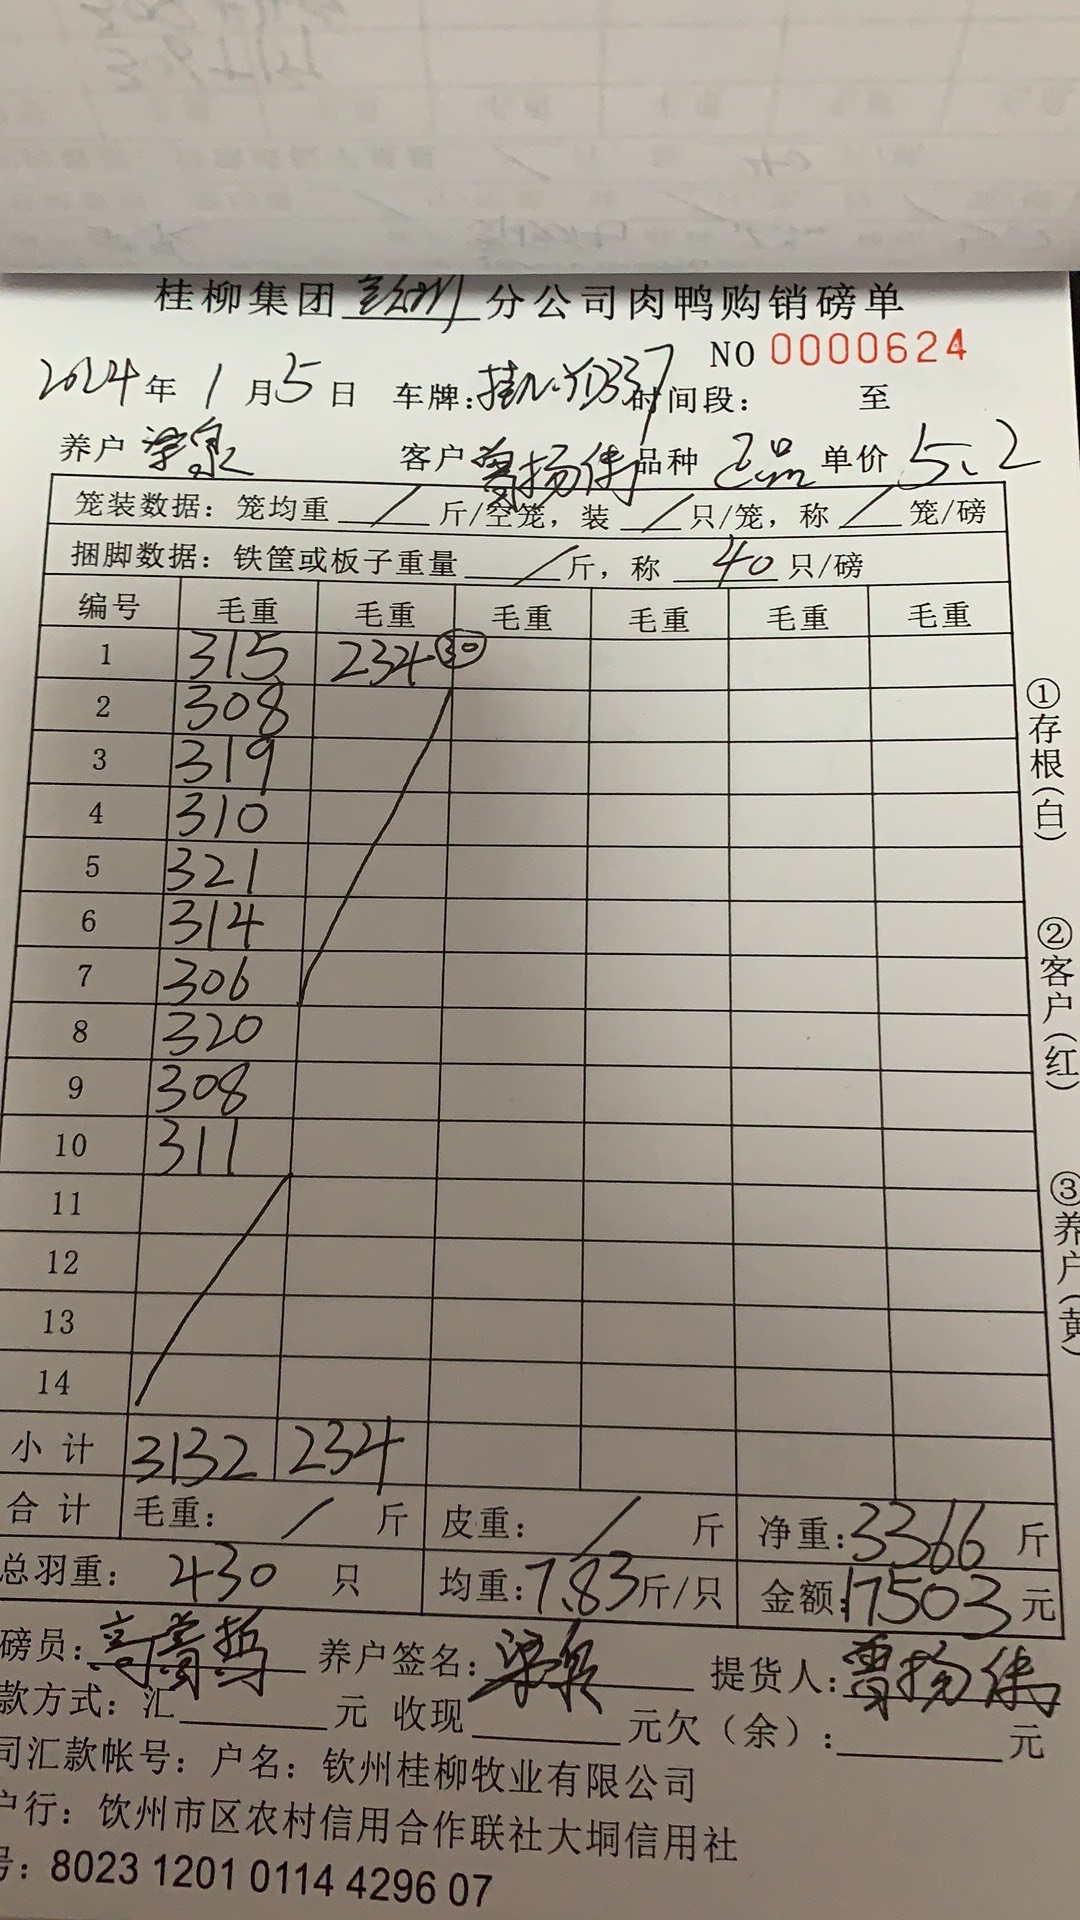 桂柳集团 分公司肉鸭购销磅单
NO 0000624
2024年 1月5日 车牌: 时间段: 至
养户 梁泉 客户 曾扬伟 品种 正品 单价 5.2
笼装数据: 笼均重 / 斤/空笼, 装 / 只/笼, 称 / 笼/磅
捆脚数据: 铁筐或板子重量 / 斤, 称 40 只/磅
编号 毛重 毛重 毛重 毛重 毛重 毛重
1 315 234 30
2 308
3 319
4 310
5 321
6 314
7 306
8 320
9 308
10 311
11
12
13
14
小计 3132 234
合计 毛重: / 斤 皮重: / 斤 净重: 3366 斤
总羽重: 430 只 均重: 7.83 斤/只 金额: 17503 元
磅员: 养户签名: 梁泉 提货人: 曾扬伟
款方式: 汇 元 收现 元欠(余): 元
司汇款帐号: 户名: 钦州桂柳牧业有限公司
户行: 饮州市区农村信用合作联社大垌信用社
号: 8023 1201 0114 4296 07
①存根(白)
②客户(红)
③养户(黄)